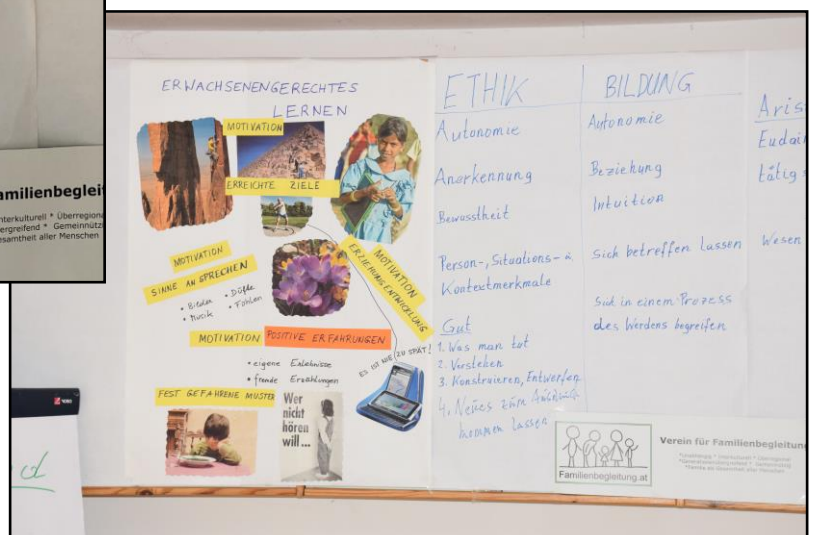 amilienbegleit
ERWACHSENENGERECHTES
LERNEN
MOTIVATION
ERREICHTE ZIELE
MOTIVATION
SINNE ANSPRECHEN
• Bilder • Düfte
• Musik • Fühlen
MOTIVATION
ERZIEHUNG ENTWICKLUNG
MOTIVATION POSITIVE ERFAHRUNGEN
• eigene Erlebnisse
• fremde Erzählungen
ES IST NIE ZU SPÄT!
FEST GEFAHRENE MUSTER
Wer
nicht
hören
will ...
ETHIK
Autonomie
Anerkennung
Bewusstheit
Person-, Situations- u.
Kontextmerkmale
Gut
1. Was man tut
2. Verstehen
3. Konstruieren, Entwerfen
4. Neues zum Ausdruck
kommen lassen
BILDUNG
Autonomie
Beziehung
Intuition
Sich betreffen lassen
Sich in einem Prozess
des Werdens begreifen
Aris
Eudai
tätig
Wesen
Verein für Familienbegleitung
Familienbegleitung.at